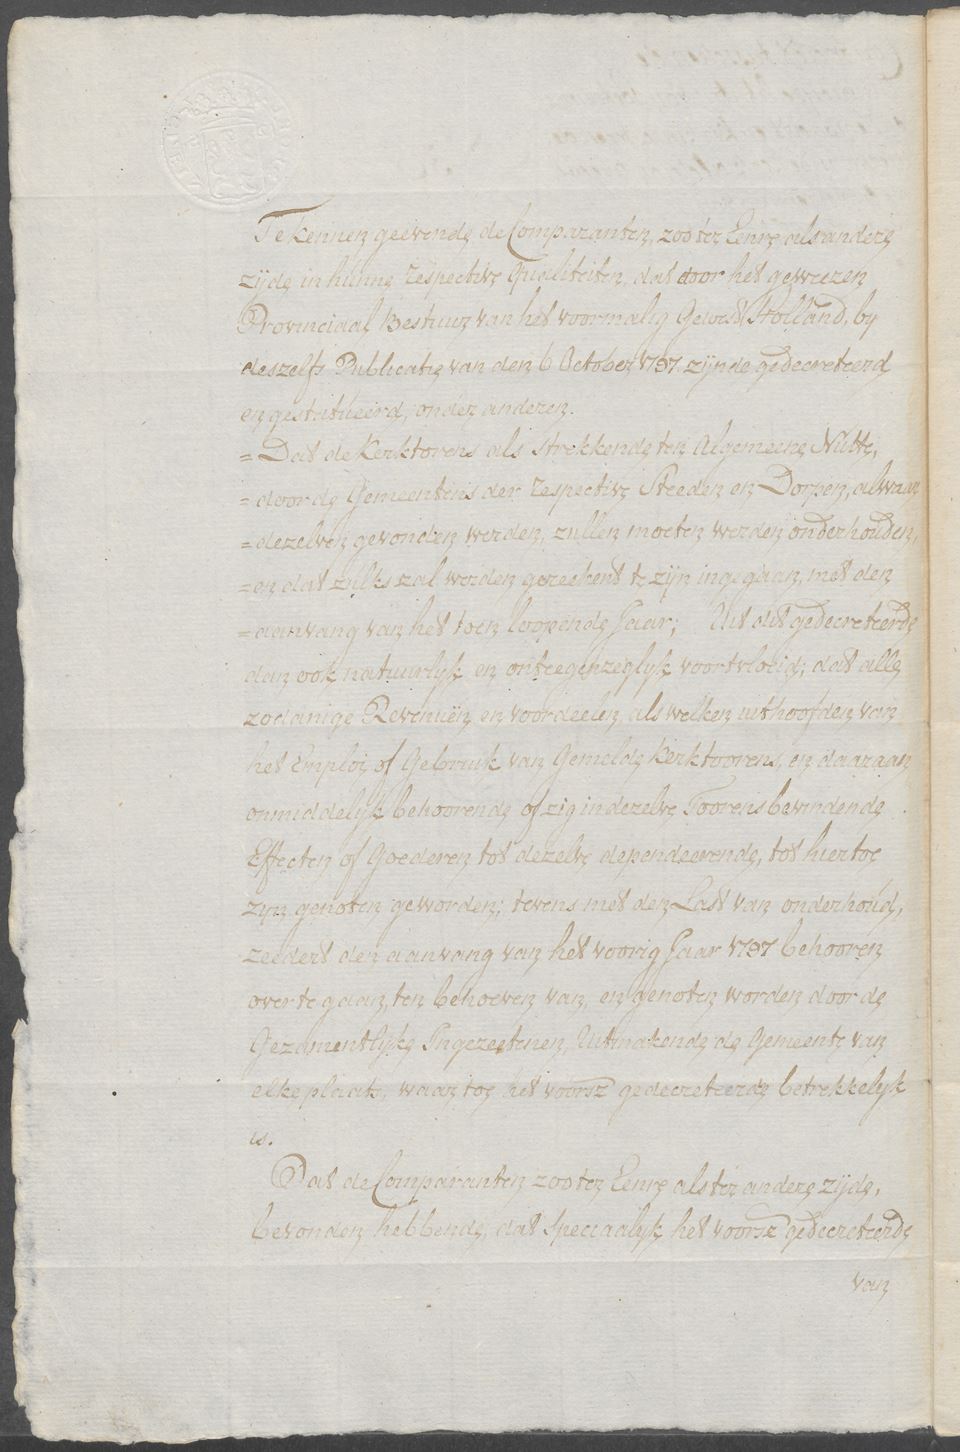 Te kennen geevende de Comparanten, zoo ter Eenre als andere
zijde in hunne respective Qualiteiten, dat door het geweezen
Provinciaal Bestuur van het voormalig Gewest Holland, by
deszelfs Publicatie van den 6 October 1797. zijnde gedecreteerd
en gestitueerd, onder anderen.
= Dat de Kerktorens als strekkende ten Algemeene Nutte,
= door de Gemeentens der respective Steeden en Dorpen, alwaar
= dezelven gevonden werden, zullen moeten werden onderhouden,
= en dat zulks zal werden gereekent te zijn ingegaan, met den
= aanvang van het toen loopende Jaar; Uit dit gedecreteerde
dan ook natuurlyk en ontegenzeglyk voortvloeid; dat alle
zodanige Revenuën en voordeelen, als welken uit hoofden van
het Emploi of Gebruik van Gemelde Kerktoorens, en daaraan
onmiddelyk behoorende of zig in dezelve Toorens bevindende
Effecten of Goederen tot dezelve dependeerende, tot hiertoe
zyn genoten geworden; tevens met den Last van onderhoud,
zeedert den aanvang van het voorig Jaar 1797 behooren
over te gaan, ten behoeven van, en genoten worden door de
Gezamentlyke Ingezeetenen, Uitmakende de Gemeente van
elke plaats, waar toe het voorsz gedecreteerde betrekkelyk
is.
Dat de Comparanten zoo ter Eenre als ter andere zijde,
bevonden hebbende, dat Speciaalyk het voorsz gedecreteerde
van